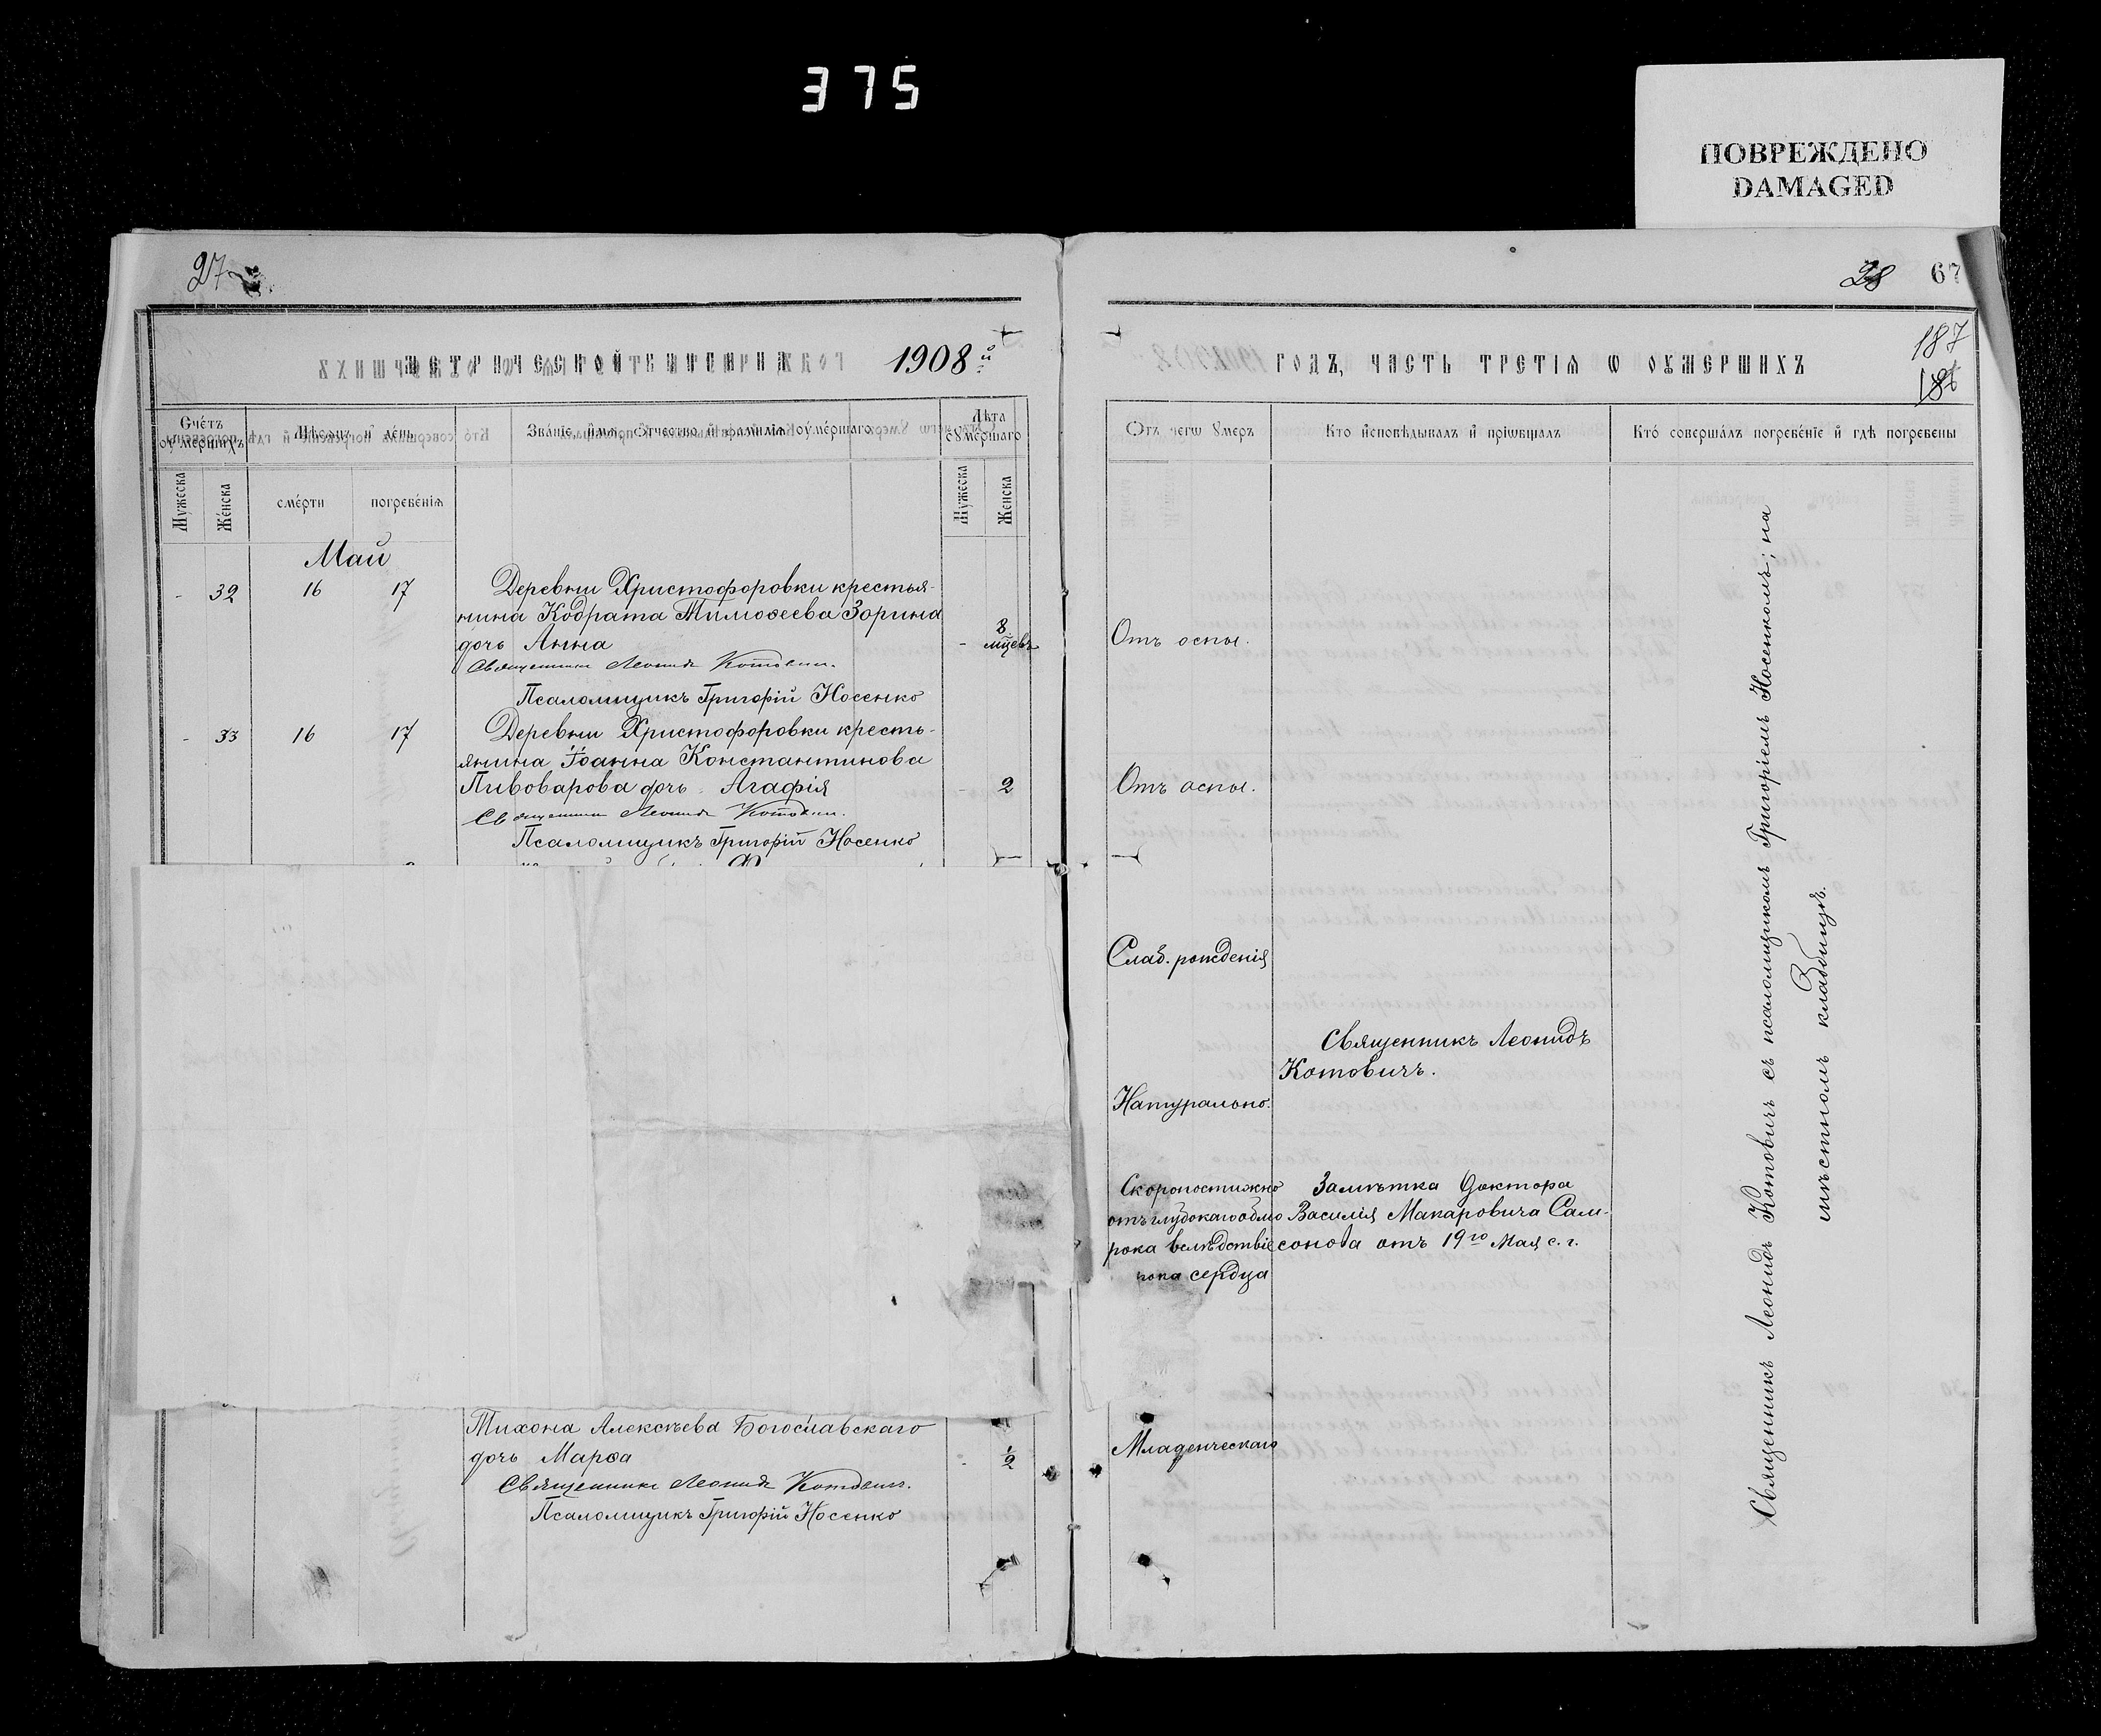 375
ПОВРЕЖДЕНО
DAMAGED
27
1908й
Счетъ оумершихъ
Мѣсяцъ и день
Званіе, имя, отчество и фамилія оумершаго
Лѣта оумершаго
Мужеска
Женска
смерти
погребенія
Мужеска
Женска
Май
- 32 16 17 Деревни Христофоровки крестья-
нина Кодрата Тимоѳеева Зорина
дочь Анна - 8 мцевъ
Священникъ Леонидъ Котовичъ.
Псаломщикъ Григорій Носенко
- 33 16 17 Деревни Христофоровки кресть-
янина Іоанна Константинова
Пивоварова дочь Агафія - 2
Священникъ Леонидъ Котовичъ.
Псаломщикъ Григорій Носенко
Тихона Алексѣева Богославскаго
дочь Марѳа - 1/2
Священникъ Леонидъ Котовичъ.
Псаломщикъ Григорій Носенко
28 67
187
186
годъ, часть третія ѡ оумершихъ
Отъ чегѡ умеръ
Кто исповѣдывалъ и пріѡбщалъ
Кто совершалъ погребеніе и гдѣ погребены
Отъ оспы.
Отъ оспы.
Слаб. рожденія
Священникъ Леонидъ
Котовичъ.
Натурально.
Скоропостижно
отъ глубокаго обмо
рока вслѣдствіе
сердца
Замѣтка доктора
Василія Макаровича Сам-
сонова отъ 19го Мая с. г.
Младенческаго
Священникъ Леонидъ Котовичъ съ псаломщикомъ Григоріемъ Носенкомъ; на
мѣстномъ кладбищѣ.